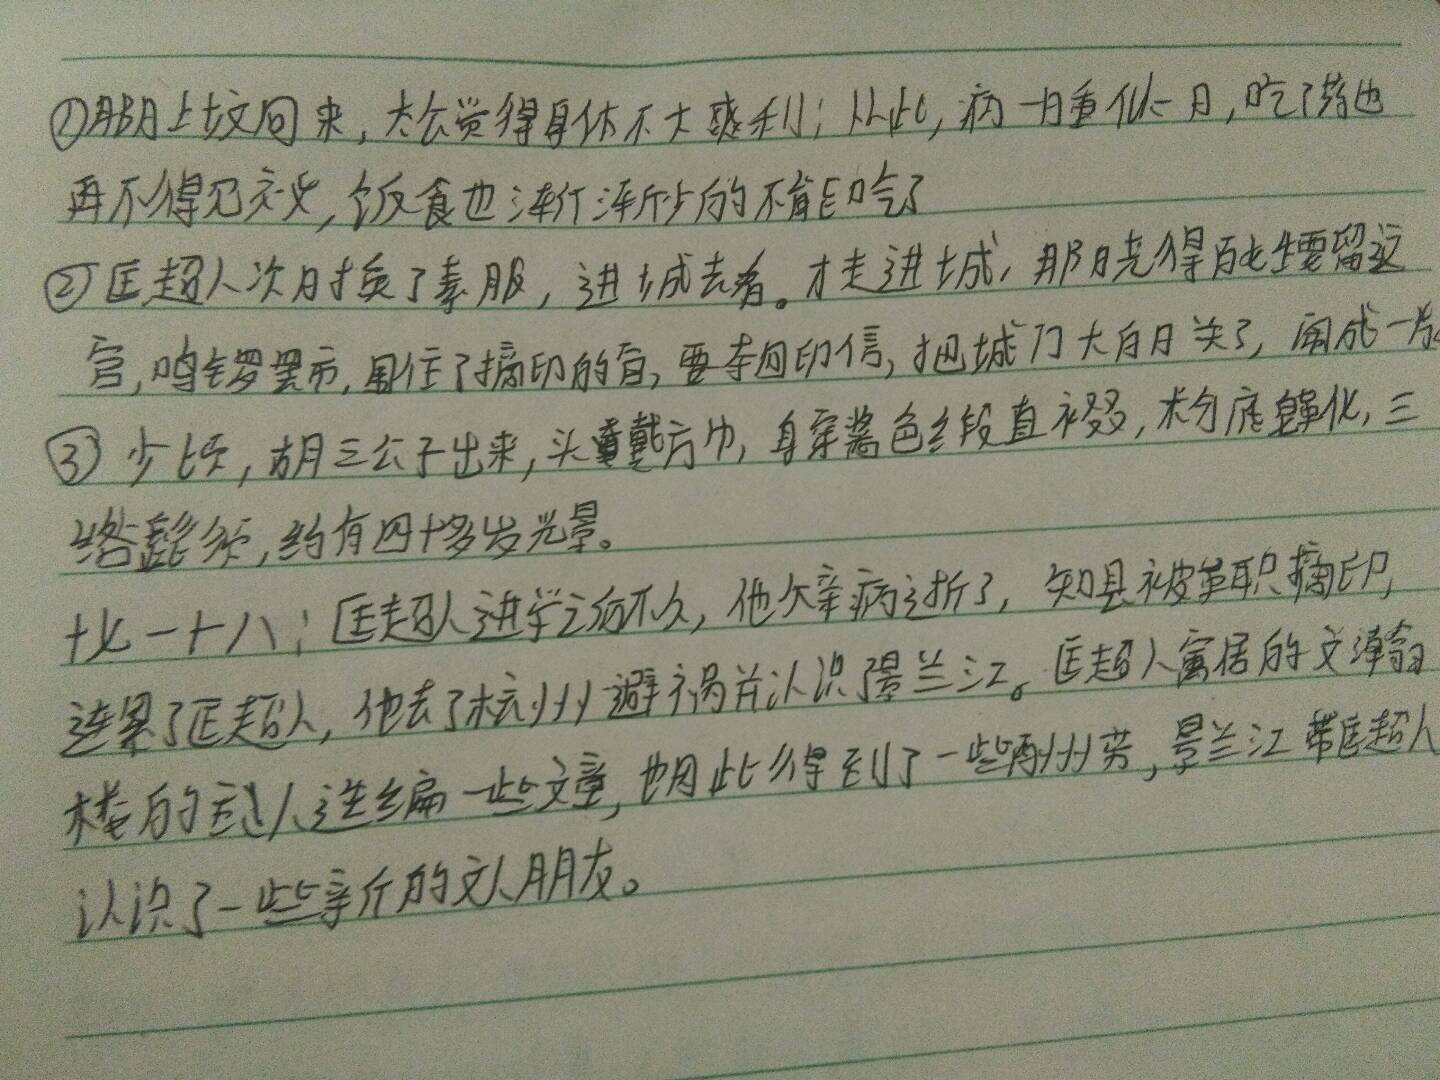 ①那日上坟回来,太公觉得身体不大爽利;从此,病一日重似一日,吃了药也
再不得见效,饭食也渐渐少的不能吃了
②匡超人次日换了素服,进城去看。才走进城,那日晓得百姓要留这
官,鸣锣罢市,围住了摘印的官,要夺回印信,把城门大白日关了,闹成一片
③少顷,胡三公子出来,头戴方巾,身穿酱色缎直裰,粉底皂靴,三
绺髭须,约有四十多岁光景。
十七一十八:匡超人进学之后不久,他父亲病逝了,知县被革职摘印,
连累了匡超人,他去了杭州避祸并认识了景兰江。匡超人寓居的文瀚
楼的主人选编一些文章,也因此得到了一些酬劳,景兰江带匡超人
认识了一些新的文人朋友。